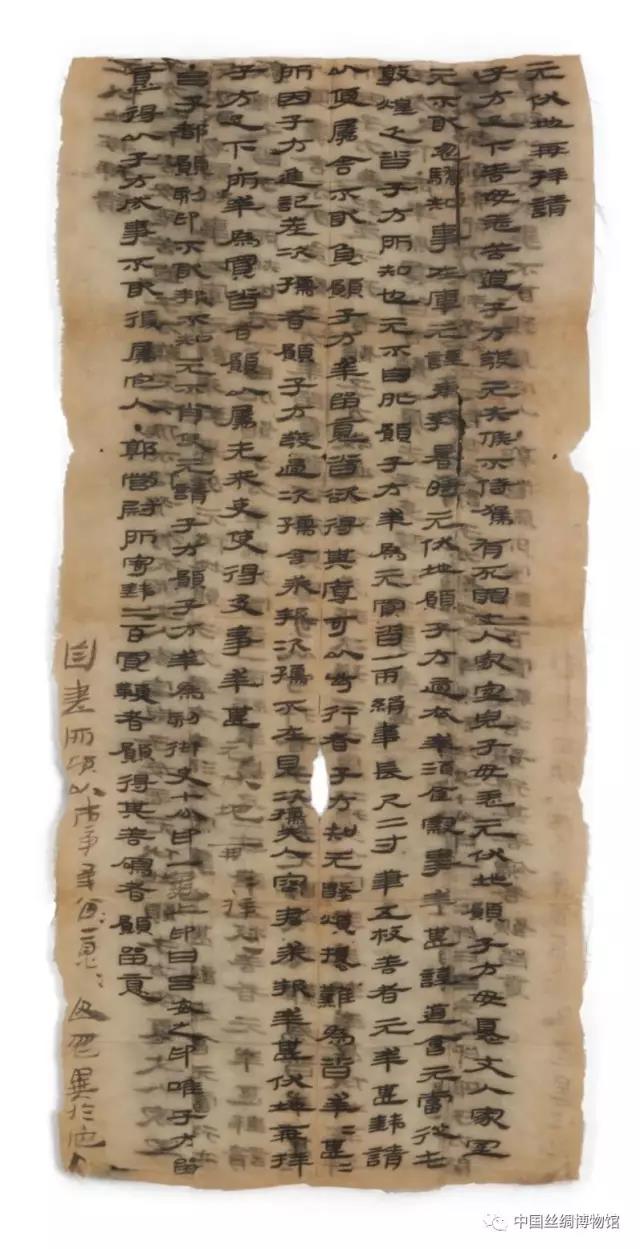 元伏地再拜請
子方足下善毋恙苦道子方發元失候不侍駕有死罪丈人家室兒子毋恙元伏地願子方毋憂丈人家室
元不敢忽驕知事在庫元謹奉教暑時元伏地願子方適衣幸酒食察事幸甚謹道會元當從屯
敦煌乏沓子方所知也元不自外願子方幸為元買沓一兩絹韋長尺二寸筆五枚善者元幸甚錢請
以便屬舍不敢負願子方幸留意沓欲得其厚可以步行者子方知元數煩擾難為沓幸=甚=
所因子方進記差次孺者願子方發過次孺舍求報次孺不在見次孺夫人容君求報幸甚伏地再拜
子方足下所幸為買沓者願以屬先來吏使得及事幸甚元伏地再拜再拜
·呂子都願刻印不敢報不知元不肖使元請子方願子方幸為刻御史七分印一龜上印曰呂安之印唯子方留
意得以子方成事不敢復屬它人·郭營尉所寄錢二百買鞭者願得其善鳴者願留意
自書所願以市事幸留=意=毋忽異於它人
中国丝绸博物馆